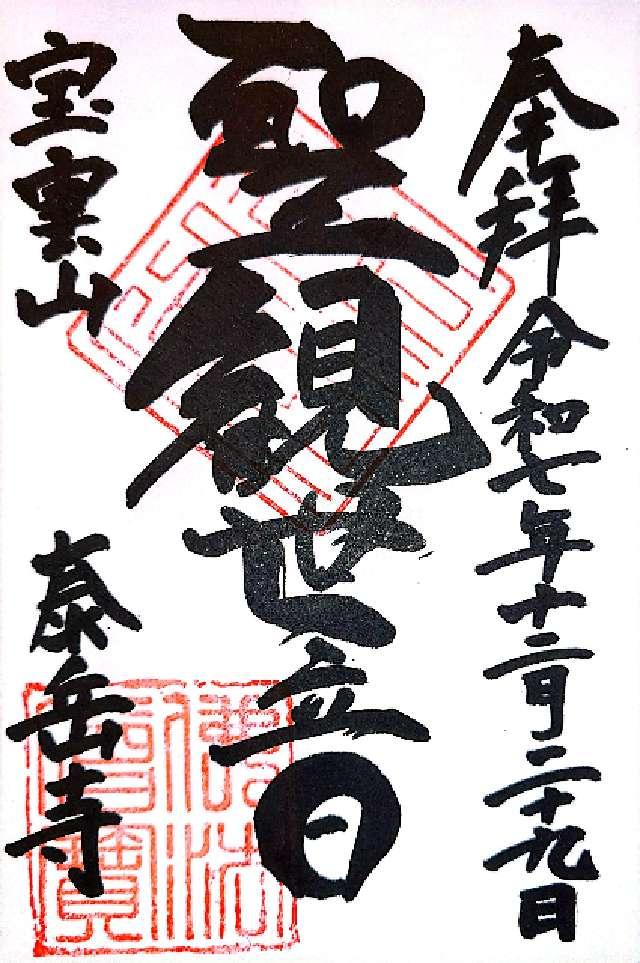 奉拝 令和七年十二月二十九日
聖観世音
宝雲山 泰岳寺
佛法僧寶